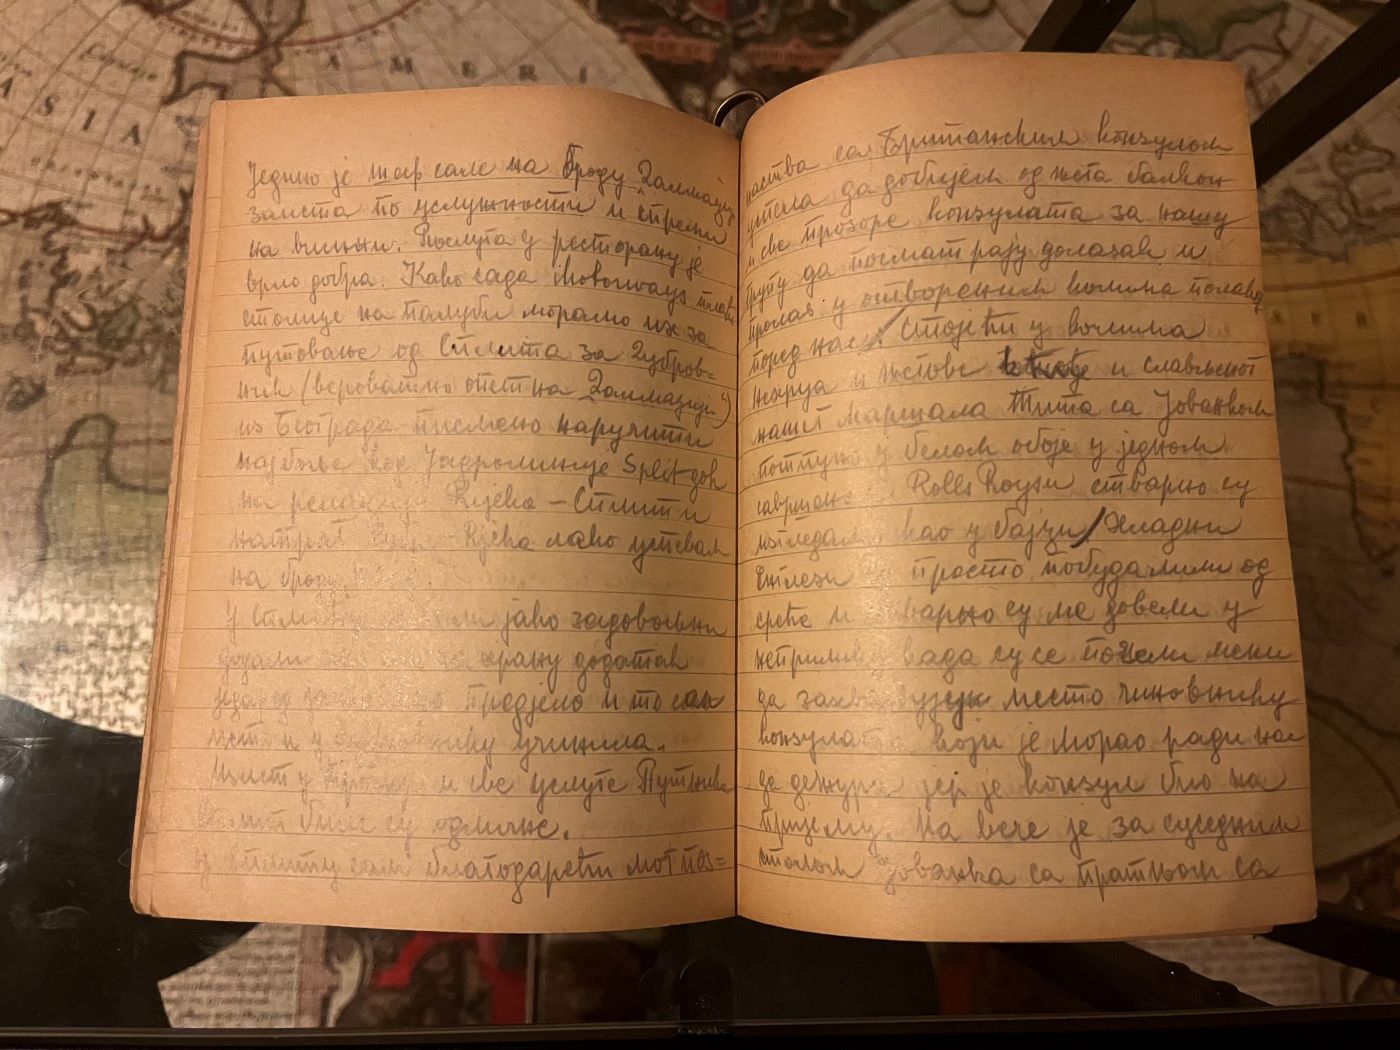 A M E R I
A S I A
Једино је шеф сале на броду Далмација
заиста по услужности и спреми
на висини. Послуга у ресторану је
врло добра. Како сада
столице на палуби морамо их за
путовање од Сплита за Дубров=
ник (вероватно опет на Далмацији)
из Београда писмено наручити
најбоље код Јадролиније Split док
на Rijeka — Сплит и
натраг Rijeka лако успевам
на
У јако задовољни
храну додатак
предјело и то сам
учинила.
и све услуге Путника
су одличне.
У Сплиту сам благодарећи мог поз=
наства са Британским конзулом
успела да добијем од њега балкон
и све прозоре конзулата за нашу
групу да посматрају долазак и
пролаз у отвореним колима
поред нас. / Стојећи у колима
Нехруа и његове и слављеног
нашег маршала Тита са Јованком
потпуно у белом обоје у једном
Rolls Roysu стварно су
изгледали као у бајци / Хладни
Енглези просто побудалили од
среће и су ме довели у
неприлику када су се почели мени
да место чиновнику
конзулата који је морао ради нас
да дежура јер је конзул био на
пријему. На вече је за суседним
столом Јованка са пратњом са